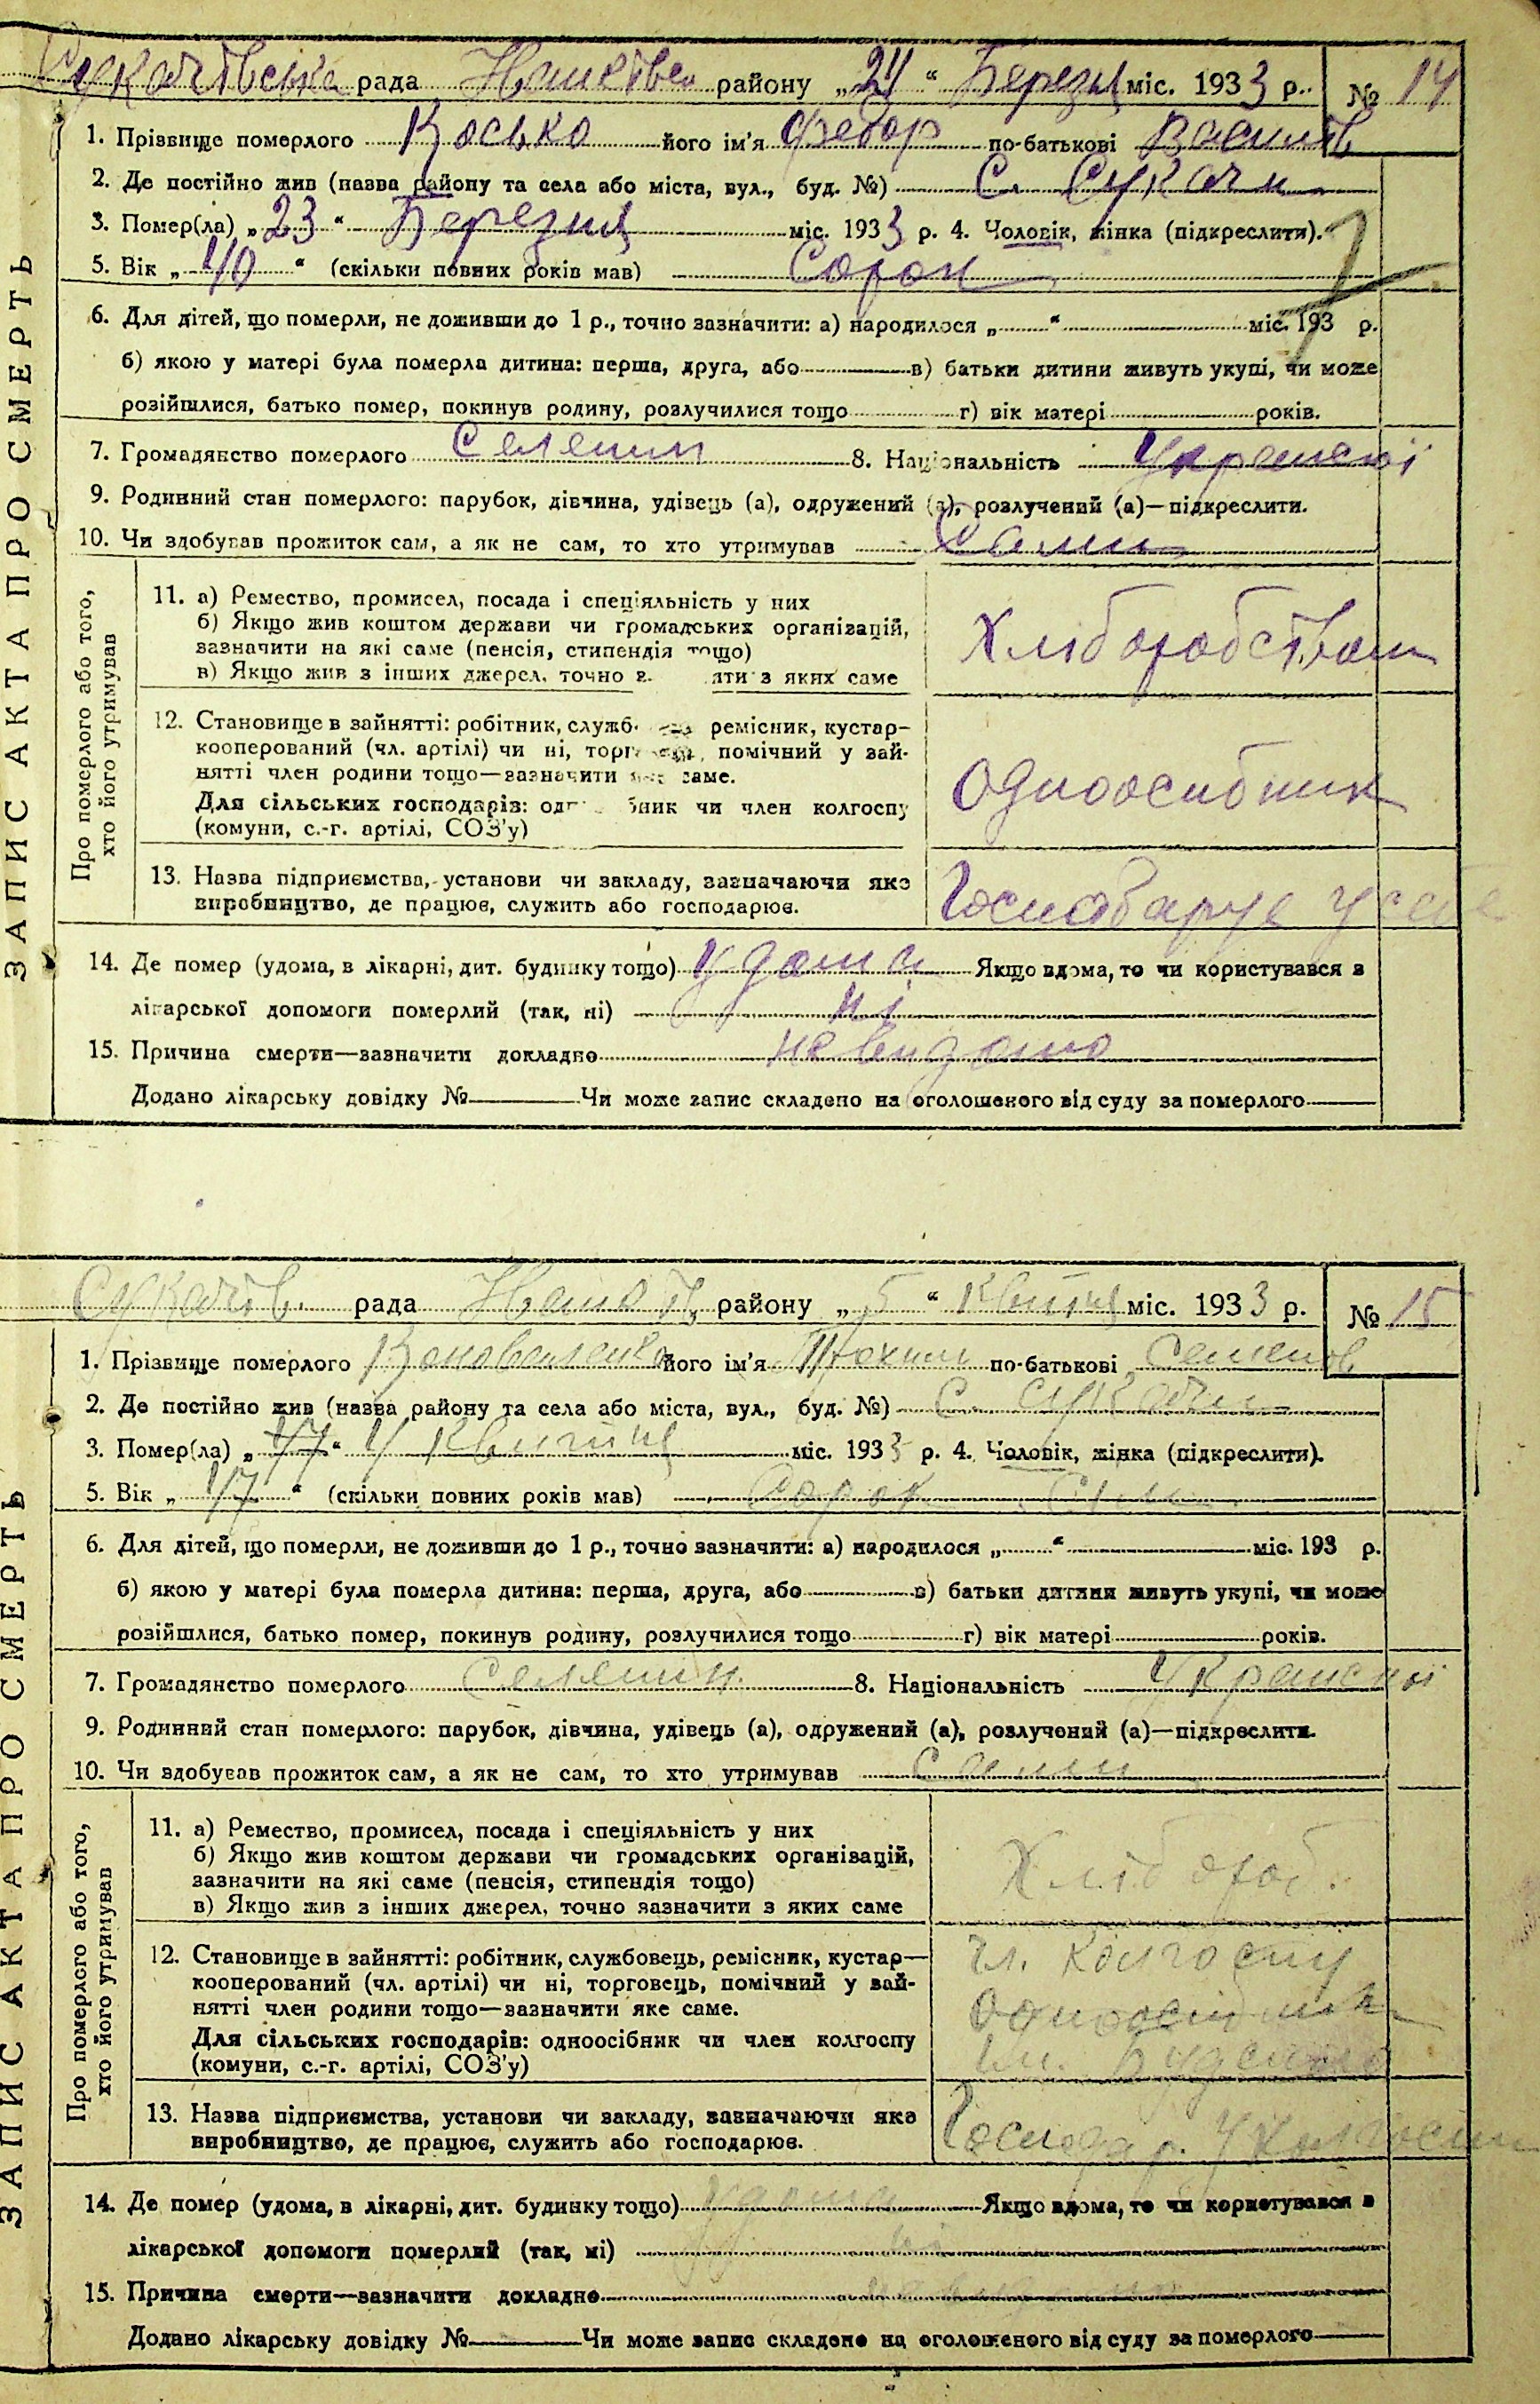 Сукачівська рада Іванківськ району „24“ Березня міс. 1933 р. № 14
1. Прізвище померлого Косько його ім'я Федор по-батькові Василів
2. Де постійно жив (назва району та села або міста, вул., буд. №) С. Сукачи
3. Помер(ла) „23“ Березня міс. 1933 р. 4. Чоловік, жінка (підкреслити).
5. Вік „40“ (скільки повних років мав) Сорок
6. Для дітей, що померли, не доживши до 1 р., точно зазначити: а) народилося „ “ міс. 193 р.
б) якою у матері була померла дитина: перша, друга, або в) батьки дитини живуть укупі, чи може
розійшлися, батько помер, покинув родину, розлучилися тощо г) вік матері років.
7. Громадянство померлого Селянин 8. Національність Української
9. Родинний стан померлого: парубок, дівчина, удівець (а), одружений (а), розлучений (а)—підкреслити.
10. Чи здобував прожиток сам, а як не сам, то хто утримував Самі
Про померлого або того,
хто його утримував
11. а) Ремество, промисел, посада і спеціяльність у них
б) Якщо жив коштом держави чи громадських організацій,
зазначити на які саме (пенсія, стипендія тощо)
в) Якщо жив з інших джерел, точно з яти з яких саме
Хліборобством
12. Становище в зайнятті: робітник, служб ремісник, кустар-
кооперований (чл. артілі) чи ні, торг помічний у зай-
нятті член родини тощо—зазначити саме.
Для сільських господарів: од бник чи член колгоспу
(комуни, с.-г. артілі, СОЗ'у)
Одноосібник
13. Назва підприємства, установи чи закладу, зазначаючи яке
виробництво, де працює, служить або господарює.
Господарує у себе
14. Де помер (удома, в лікарні, дит. будинку тощо) удома Якщо вдома, то чи користувався з
лікарської допомоги померлий (так, ні) ні
15. Причина смерти—зазначити докладно невидомо
Додано лікарську довідку № Чи може запис складено на оголошеного від суду за померлого
ЗАПИС АКТА ПРО СМЕРТЬ
Сукачів. рада Іванків. району „5“ Квітня міс. 1933 р. № 15
1. Прізвище померлого Коноваленко його ім'я по-батькові Семенов
2. Де постійно жив (назва району та села або міста, вул., буд. №) С. Сукачи
3. Помер(ла) „47“ 4 Квитня міс. 1933 р. 4. Чоловік, жінка (підкреслити).
5. Вік „47“ (скільки повних років мав) Сорок Сім
6. Для дітей, що померли, не доживши до 1 р., точно зазначити: а) народилося „ “ міс. 193 р.
б) якою у матері була померла дитина: перша, друга, або в) батьки дитини живуть укупі, чи може
розійшлися, батько помер, покинув родину, розлучилися тощо г) вік матері років.
7. Громадянство померлого Селянин. 8. Національність Української
9. Родинний стан померлого: парубок, дівчина, удівець (а), одружений (а), розлучений (а)—підкреслити.
10. Чи здобував прожиток сам, а як не сам, то хто утримував Самі
Про померлого або того,
хто його утримував
11. а) Ремество, промисел, посада і спеціяльність у них
б) Якщо жив коштом держави чи громадських організацій,
зазначити на які саме (пенсія, стипендія тощо)
в) Якщо жив з інших джерел, точно зазначити з яких саме
Хлібороб.
12. Становище в зайнятті: робітник, службовець, ремісник, кустар—
кооперований (чл. артілі) чи ні, торговець, помічний у зай-
нятті член родини тощо—зазначити яке саме.
Для сільських господарів: одноосібник чи член колгоспу
(комуни, с.-г. артілі, СОЗ'у)
Чл. Колгоспу
Одноосібник
13. Назва підприємства, установи чи закладу, зазначаючи яке
виробництво, де працює, служить або господарює.
Господар. у Колгоспи
14. Де помер (удома, в лікарні, дит. будинку тощо) удома Якщо вдома, то чи користувався з
лікарської допомоги померлий (так, ні) ні
15. Причина смерти—зазначити докладно невидомо
Додано лікарську довідку № Чи може запис складено на оголошеного від суду за померлого
ЗАПИС АКТА ПРО СМЕРТЬ